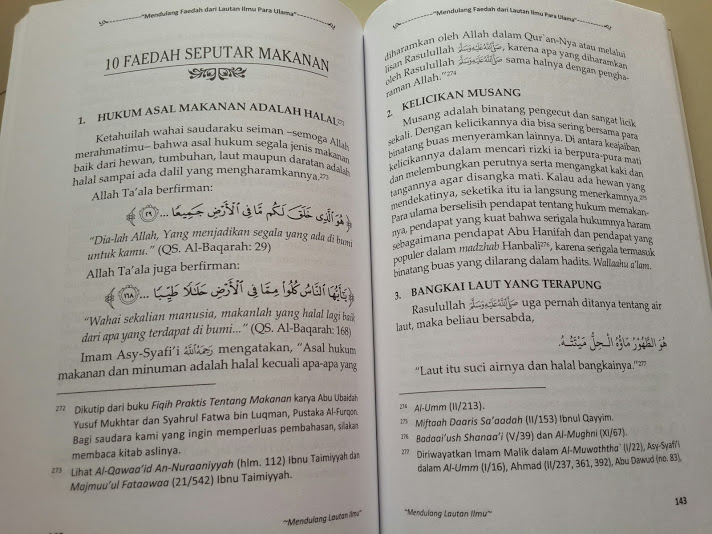 ~"Mendulang Faedah dari Lautan Ilmu Para Ulama"~
10 FAEDAH SEPUTAR MAKANAN
1. HUKUM ASAL MAKANAN ADALAH HALAL²⁷²
Ketahuilah wahai saudaraku seiman –semoga Allah
merahmatimu– bahwa asal hukum segala jenis makanan
baik dari hewan, tumbuhan, laut maupun daratan adalah
halal sampai ada dalil yang mengharamkannya.²⁷³
Allah Ta'ala berfirman:
﴿ هُوَ ٱلَّذِى خَلَقَ لَكُم مَّا فِى ٱلۡأَرۡضِ جَمِيعًا ... ٢٩ ﴾
"Dia-lah Allah, Yang menjadikan segala yang ada di bumi
untuk kamu." (QS. Al-Baqarah: 29)
Allah Ta'ala juga berfirman:
﴿ يَٰٓأَيُّهَا ٱلنَّاسُ كُلُواْ مِمَّا فِى ٱلۡأَرۡضِ حَلَٰلٗا طَيِّبٗا ... ١٦٨ ﴾
"Wahai sekalian manusia, makanlah yang halal lagi baik
dari apa yang terdapat di bumi..." (QS. Al-Baqarah: 168)
Imam Asy-Syafi'i رَحِمَهُ ٱللَّهُ mengatakan, "Asal hukum
makanan dan minuman adalah halal kecuali apa-apa yang
272 Dikutip dari buku Fiqih Praktis Tentang Makanan karya Abu Ubaidah
Yusuf Mukhtar dan Syahrul Fatwa bin Luqman, Pustaka Al-Furqon.
Bagi saudara kami yang ingin memperluas pembahasan, silakan
membaca kitab aslinya.
273 Lihat Al-Qawaa'id An-Nuraaniyyah (hlm. 112) Ibnu Taimiyyah dan
Majmuu'ul Fataawaa (21/542) Ibnu Taimiyyah.
~Mendulang Lautan Ilmu"
~"Mendulang Faedah dari Lautan Ilmu Para Ulama"~
diharamkan oleh Allah dalam Qur`an-Nya atau melalui
lisan Rasulullah صَلَّى ٱللَّهُ عَلَيْهِ وَسَلَّمَ, karena apa yang diharamkan
oleh Rasulullah صَلَّى ٱللَّهُ عَلَيْهِ وَسَلَّمَ sama halnya dengan pengha-
raman Allah."²⁷⁴
2. KELICIKAN MUSANG
Musang adalah binatang pengecut dan sangat licik
sekali. Dengan kelicikannya dia bisa sering bersama para
binatang buas menyeramkan lainnya. Di antara keajaiban
kelicikannya dalam mencari rizki ia berpura-pura mati
dan melembungkan perutnya serta mengangkat kaki dan
tangannya agar disangka mati. Kalau ada hewan yang
mendekatinya, seketika itu ia langsung menerkamnya.²⁷⁵
Para ulama berselisih pendapat tentang hukum memakan-
nya, pendapat yang kuat bahwa serigala hukumnya haram
sebagaimana pendapat Abu Hanifah dan pendapat yang
populer dalam madzhab Hanbali²⁷⁶, karena serigala termasuk
binatang buas yang dilarang dalam hadits. Wallaahu a'lam.
3. BANGKAI LAUT YANG TERAPUNG
Rasulullah صَلَّى ٱللَّهُ عَلَيْهِ وَسَلَّمَ uga pernah ditanya tentang air
laut, maka beliau bersabda,
هُوَ الطَّهُوْرُ مَاؤُهُ الْحِلُّ مَيْتَتُهُ.
"Laut itu suci airnya dan halal bangkainya."²⁷⁷
274 Al-Umm (II/213).
275 Miftaah Daaris Sa'aadah (II/153) Ibnul Qayyim.
276 Badaai'ush Shanaa'i (V/39) dan Al-Mughni (XI/67).
277 Diriwayatkan Imam Malik dalam Al-Muwaththa` (I/22), Asy-Syafi'i
dalam Al-Umm (I/16), Ahmad (II/237, 361, 392), Abu Dawud (no. 83),
143
"Mendulang Lautan Ilmu~